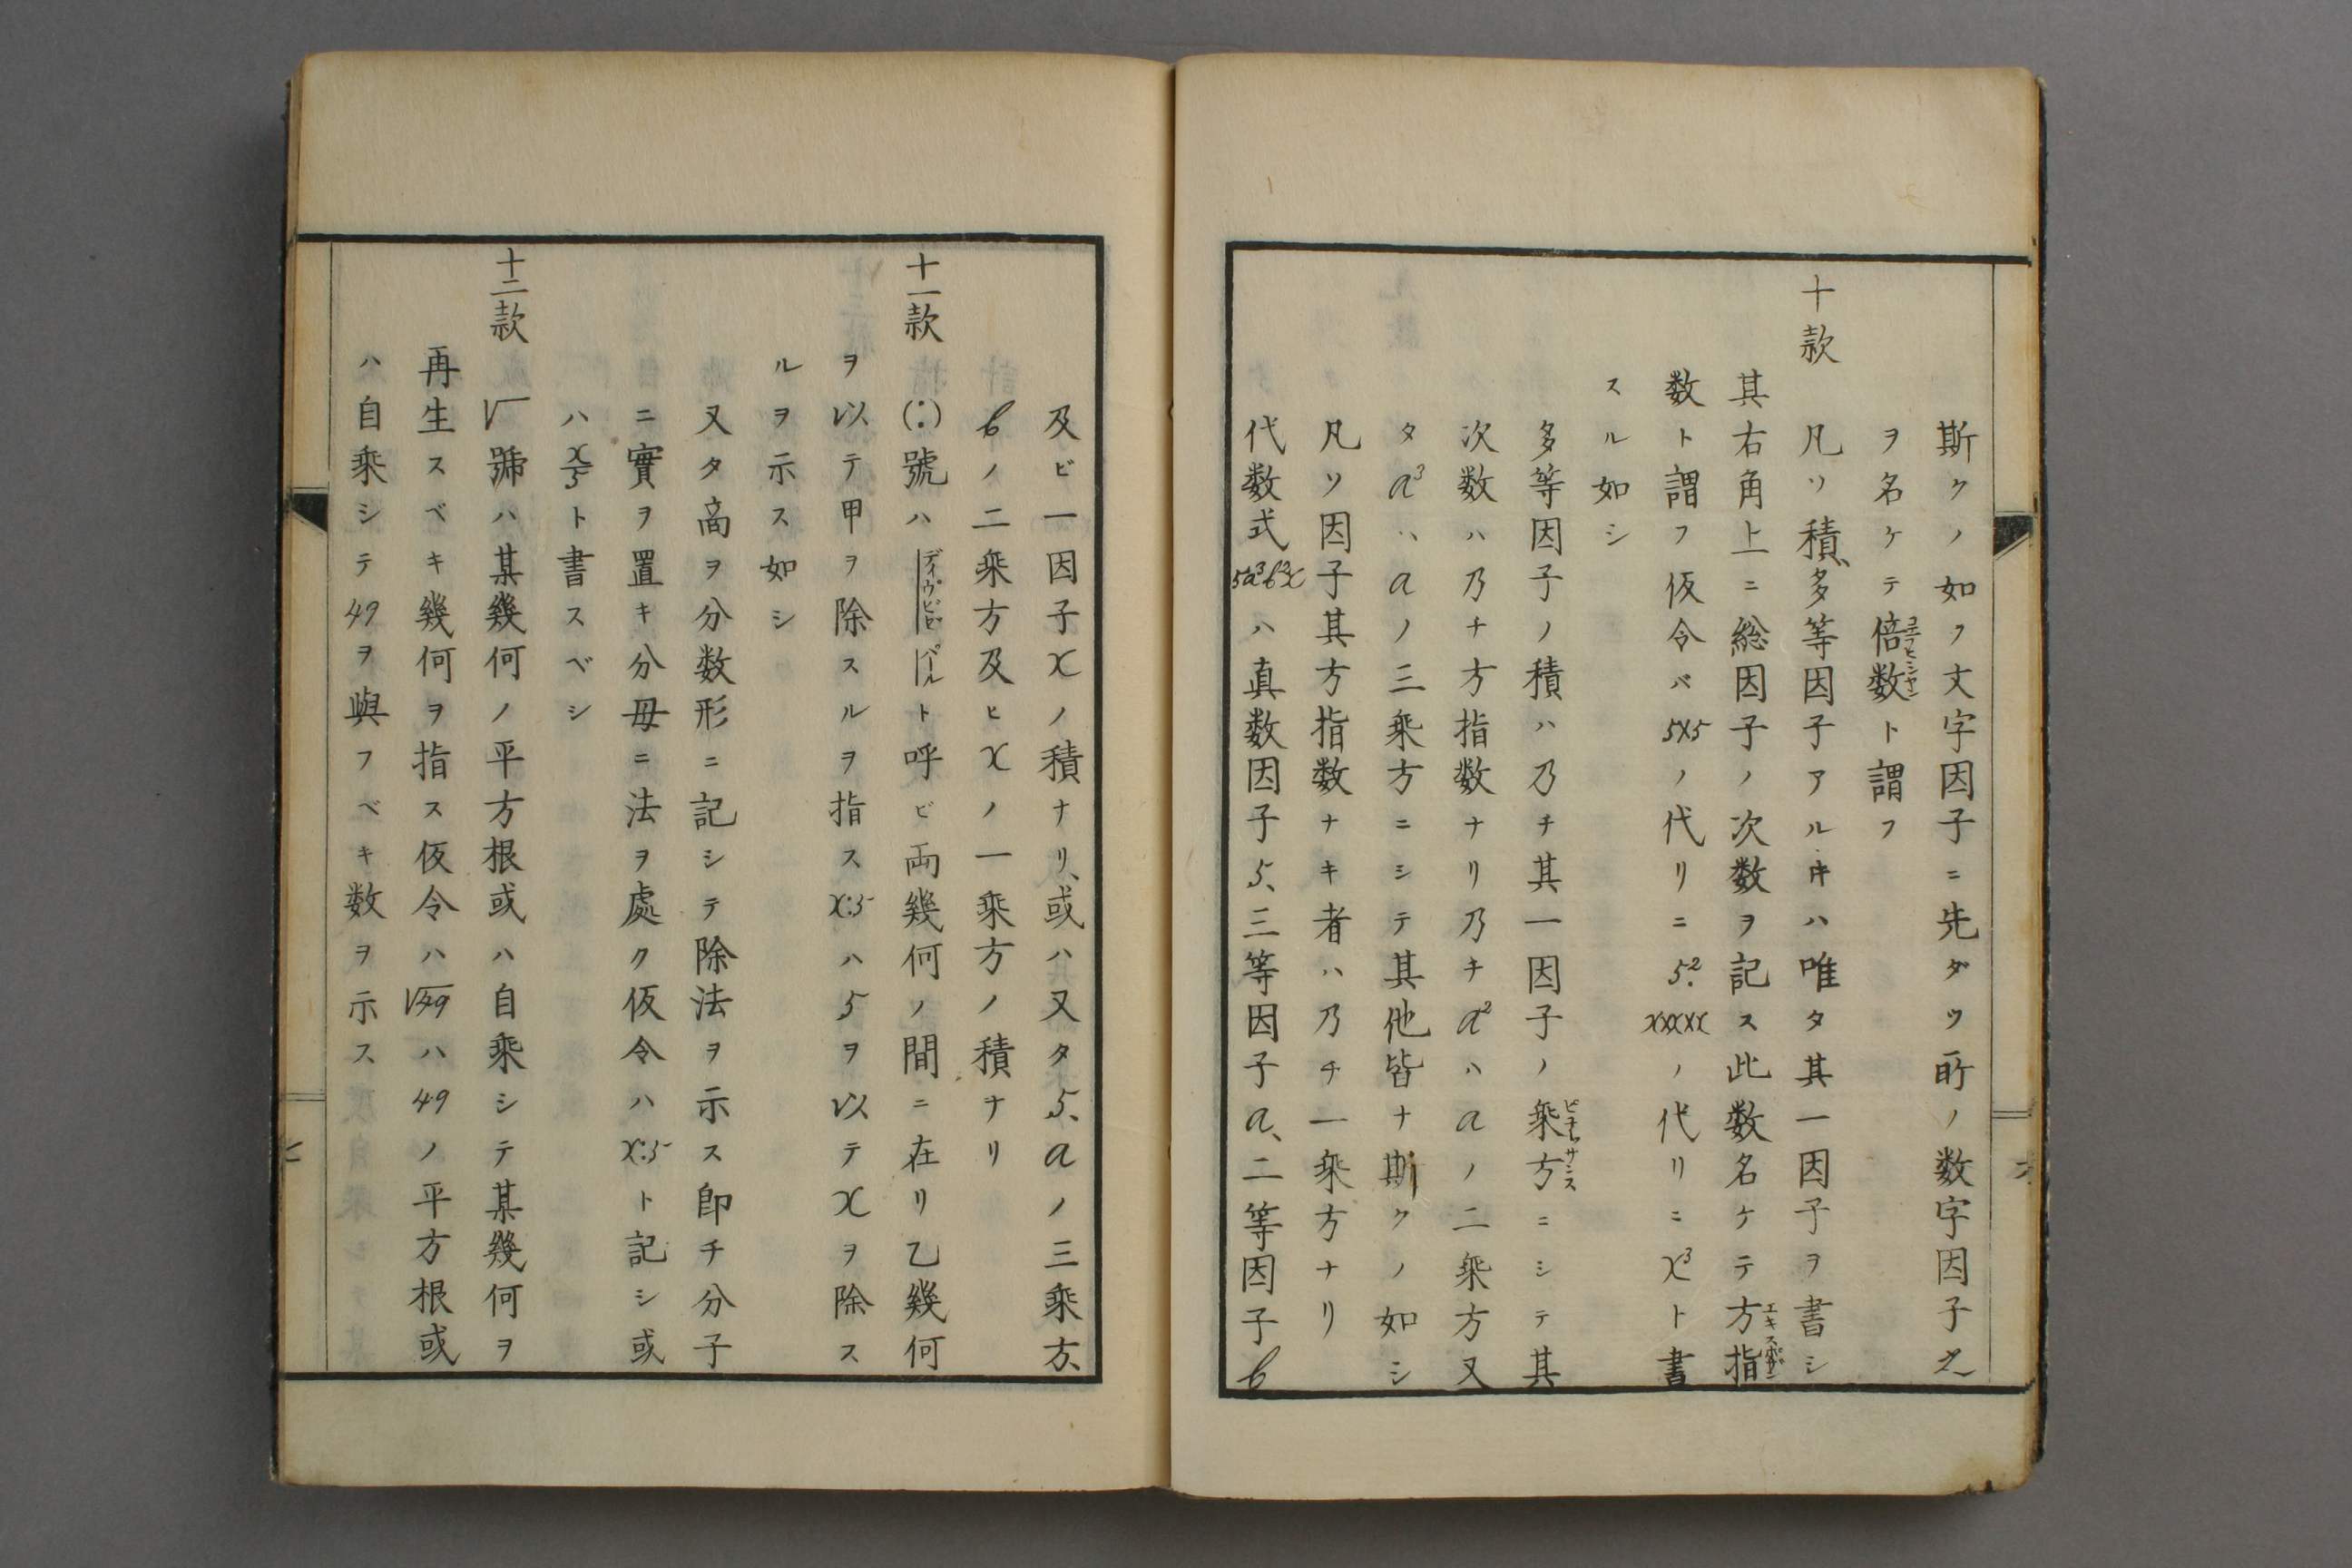 斯クノ如ク文字因子ニ先ダツ所ノ数字因子之
ヲ名ケテ倍数ト謂フ
十款
凡ソ積、多等因子アルキハ唯タ其一因子ヲ書シ
其右角上ニ総因子ノ次数ヲ記ス此数名ケテ方指
数ト謂フ仮令バ5×5ノ代リニ5².xxxxxノ代リニx³ト書
スル如シ
多等因子ノ積ハ乃チ其一因子ノ乘方ニシテ其
次数ハ乃チ方指数ナリ乃チa²ハaノ二乘方又
タa³ハaノ三乘方ニシテ其他皆ナ斯クノ如シ
凡ソ因子其方指数ナキ者ハ乃チ一乘方ナリ
代数式5a³b²xハ真数因子5、三等因子a、二等因子b
及ビ一因子xノ積ナリ、或ハ又タ5、aノ三乘方、
bノ二乘方及ヒxノ一乘方ノ積ナリ
十一款
(:)號ハディヴィビ、パールト呼ビ両幾何ノ間ニ在リ乙幾何
ヲ以テ甲ヲ除スルヲ指スx:5ハ5ヲ以テxヲ除ス
ルヲ示ス如シ
又タ商ヲ分数形ニ記シテ除法ヲ示ス即チ分子
ニ實ヲ置キ分母ニ法ヲ處ク仮令ハx:5ト記シ或
ハx/5ト書スベシ
十二款
√號ハ某幾何ノ平方根或ハ自乘シテ某幾何ヲ
再生スベキ幾何ヲ指ス仮令ハ√49ハ49ノ平方根或
ハ自乘シテ49ヲ與フベキ数ヲ示ス